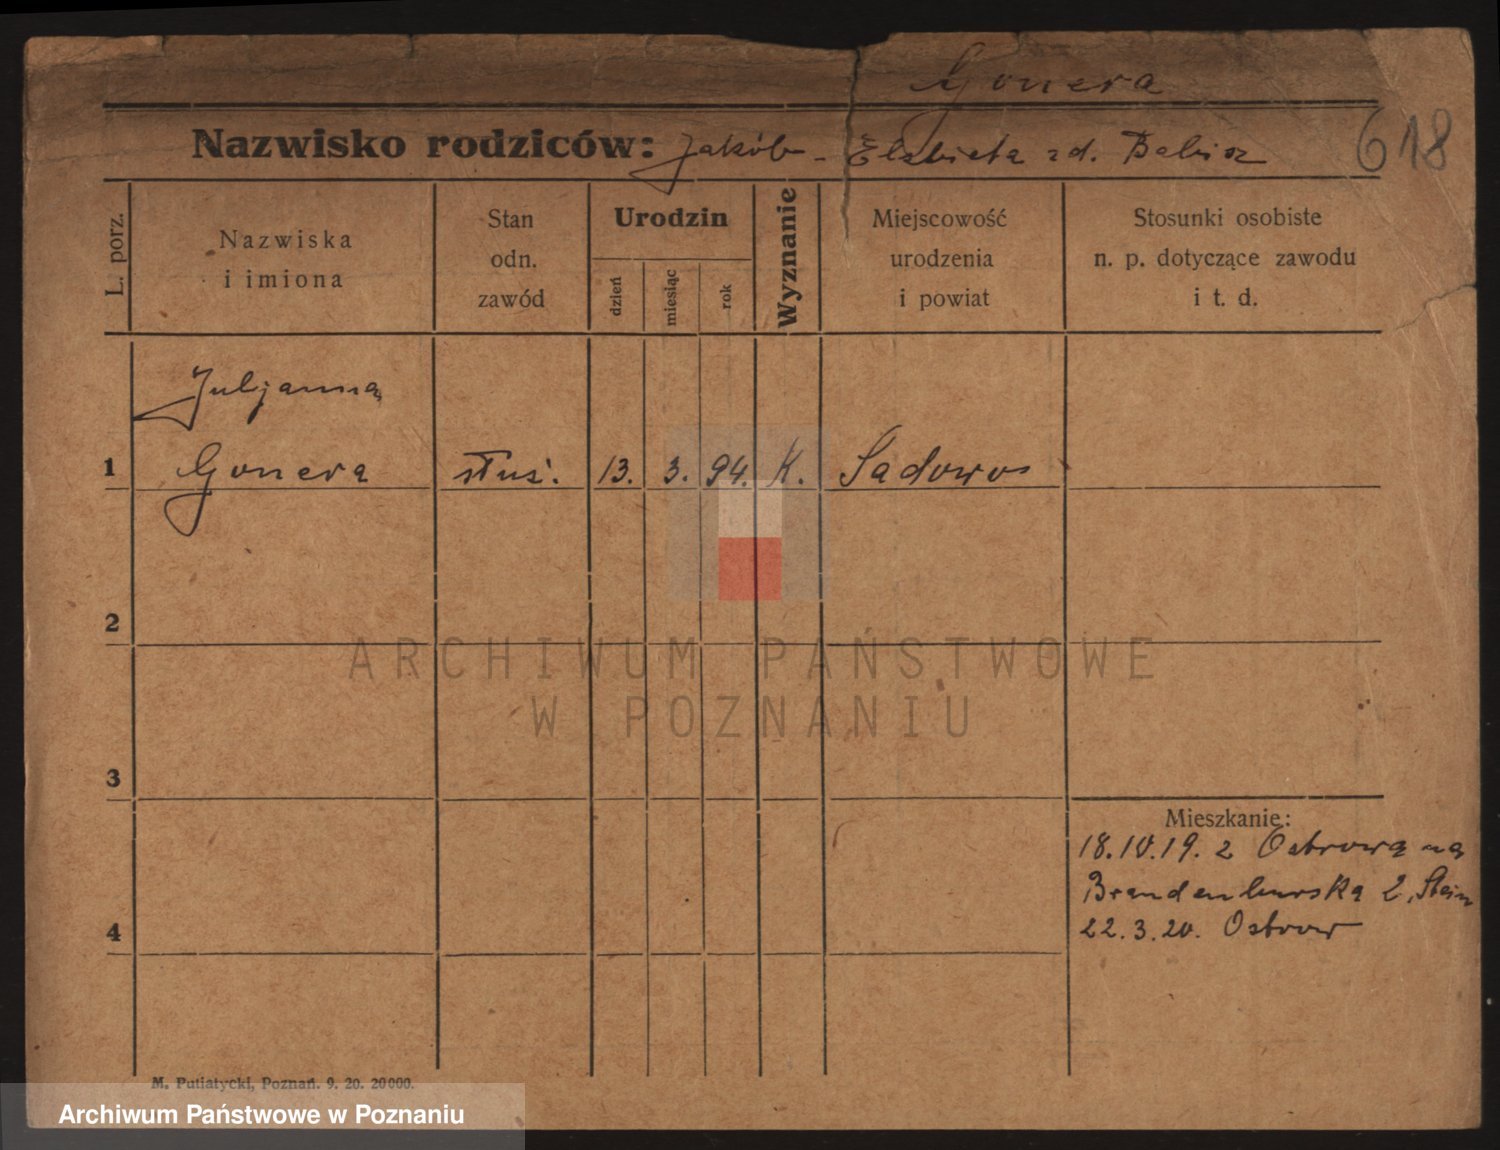 Gonera
Nazwisko rodziców: Jakób - Elżbieta zd. Babisz
618
L. porz.
Nazwiska
i imiona
Stan
odn.
zawód
Urodzin
dzień
miesiąc
rok
Wyznanie
Miejscowość
urodzenia
i powiat
Stosunki osobiste
n. p. dotyczące zawodu
i t. d.
Juljanna
1 Gonera służ. 13. 3. 94. K. Sadowo
2
ARCHIWUM PAŃSTWOWE
W POZNANIU
3
Mieszkanie:
18.10.19. z Ostrowa na
Brandenburska 2, Stein
4 22.3.20. Ostrow
M. Putiatycki, Poznań. 9. 20. 20000.
Archiwum Państwowe w Poznaniu